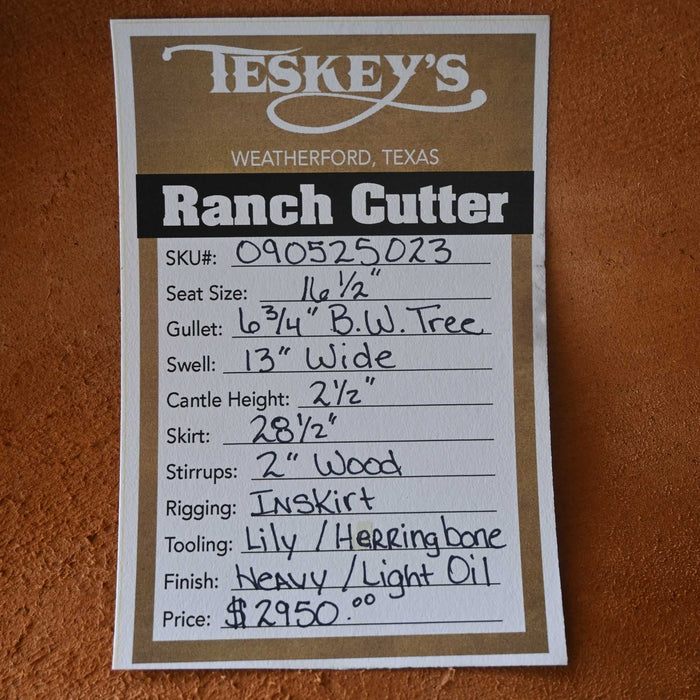 TESKEY'S
WEATHERFORD, TEXAS
Ranch Cutter
SKU#: 090525023
Seat Size: 16 1/2"
Gullet: 6 3/4" B.W. Tree
Swell: 13" Wide
Cantle Height: 2 1/2"
Skirt: 28 1/2"
Stirrups: 2" Wood
Rigging: INSKirt
Tooling: Lily / HeRRingbone
Finish: HeAvy / Light Oil
Price: $2950.00